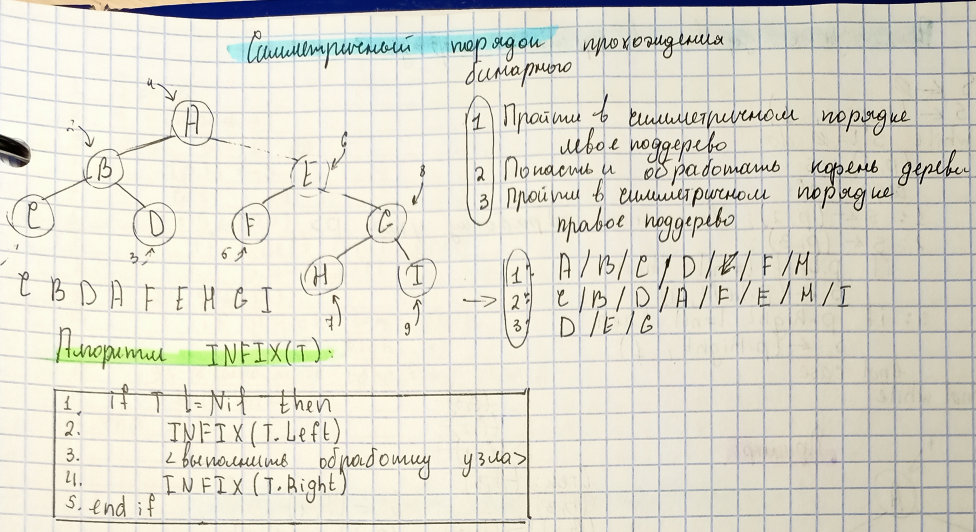 Симметричный порядок прохождения
бинарного
1 Пройти в симметричном порядке
левое поддерево
2 Попасть и обработать корень дерева
3 Пройти в симметричном порядке
правое поддерево
4
A
2
B
6
E
8
1
C
D
3
F
5
G
H
7
I
9
C B D A F E H G I
1. A / B / C / D / E / F / H
→ 2. C / B / D / A / F / E / H / I
3. D / E / G
Алгоритм INFIX(T):
1. if T != Nil then
2. INFIX(T.Left)
3. <выполнить обработку узла>
4. INFIX(T.Right)
5. end if